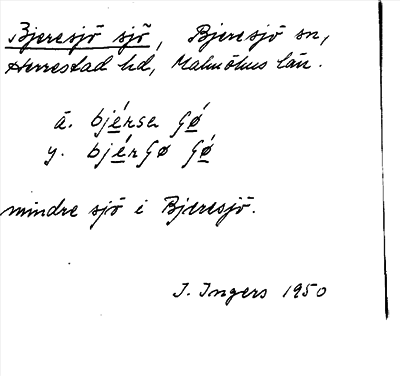 Bjeresjö sjö, Bjeresjö sn,
Herrestad hd, Malmöhus län.
ä. bjérser Gǿ
y. bjérGø Gǿ
mindre sjö i Bjeresjö.
I. Ingers 1950